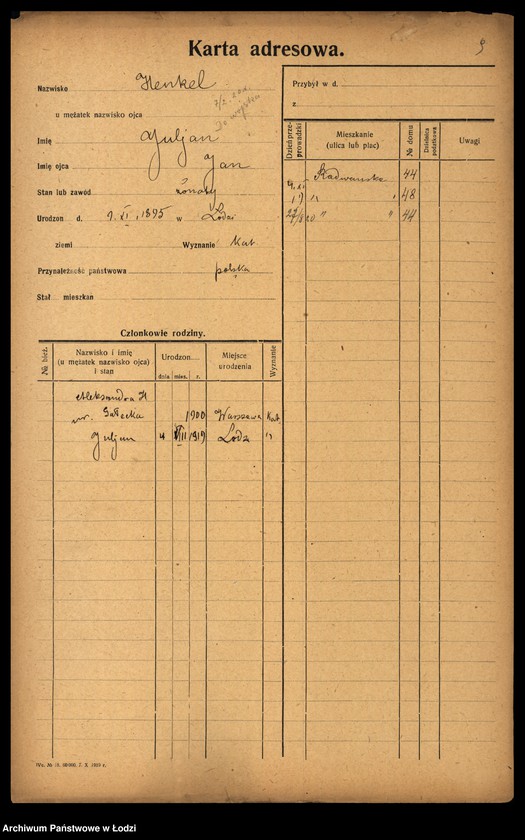 Karta adresowa.
9
Nazwisko Henkel
u mężatek nazwisko ojca
7/2. 20 r. Do wojska
Imię Juljan
Imię ojca Jan
Stan lub zawód żonaty
Urodzon d. 9. XI, 1895 w Łodzi
ziemi Wyznanie Kat
Przynależność państwowa polska
Stał. mieszkan
Przybył w d.
z
Dzień przeprowadzki
Mieszkanie (ulica lub plac)
№ domu
Dzielnica podatkowa
Uwagi
Radwańska 44
19 " " 48
20 " " 44
Członkowie rodziny.
№ bież.
Nazwisko i imię (u mężatek nazwisko ojca) i stan
Urodzon
dnia mies. r.
Miejsce urodzenia
Wyznanie
Aleksandra H
ur. 1900 Warszawa Kat.
Juljan 4 VII 1919 Łódź "
7. X 1919 r.
Archiwum Państwowe w Łodzi